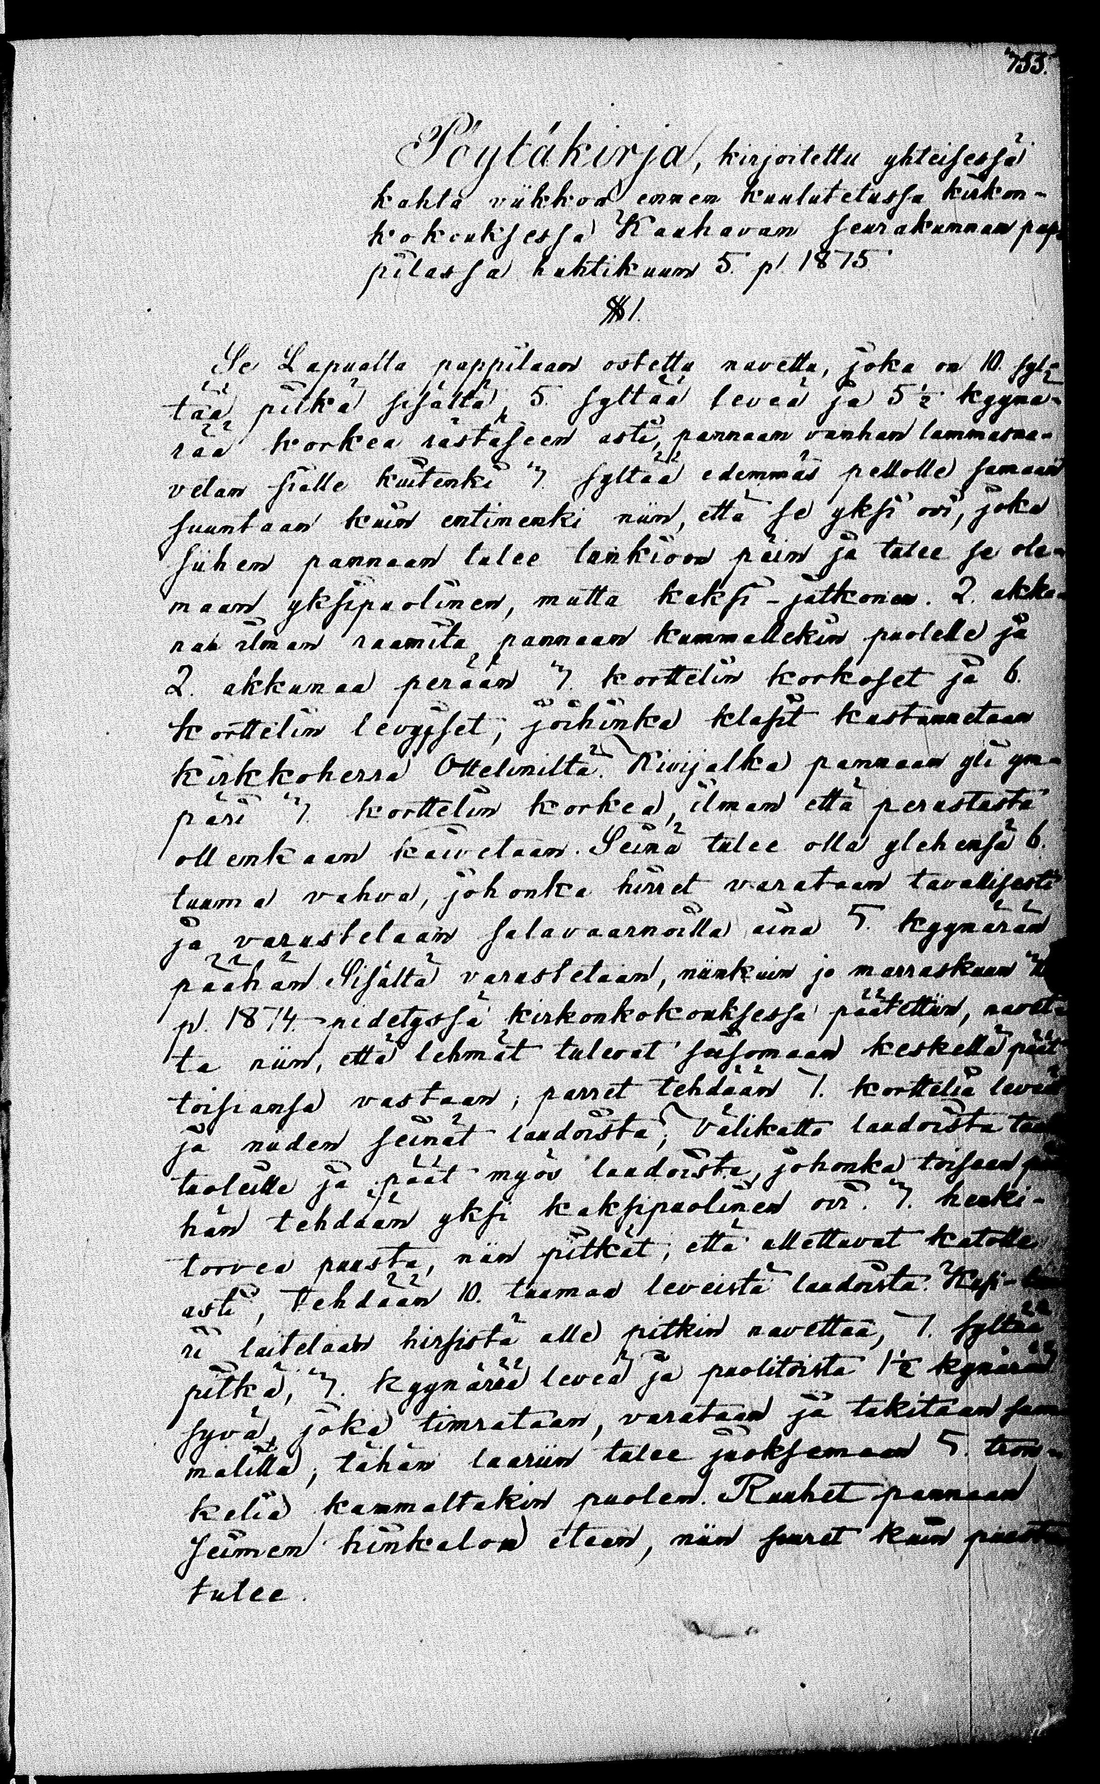 753.
Pöytäkirja, kirjoitettu yhteisessä
kahta viikkoa ennen kuulutetussa kirkon-
kokouksessa Kauhavan seurakunnan pap-
pilassa huhtikuun 5. p. 1875
§ 1.
Se Lapualta pappilaan ostettu navetta, joka on 10. syl-
tää pitkä sisältä, 5. syltää leveä ja 5 ½ kyynä-
rää korkea rästäseen asti, pannaan vanhan lammasna-
vetan sialle kuitenki 7. syltää edemmäs pellolle samaan
suuntaan kuin entinenki niin, että se yksi ovi, joka
siihen pannaan tulee tunkioon päin ja tulee se ole-
maan yksipuolinen, mutta kaksi-jatkonen. 2. akku-
naa ilman raamita pannaan kummallekin puolelle ja
2. akkunaa perään 7. korttelin korkoset ja 6.
korttelin levyjset, joihinka klasit kustannetaan
kirkkoherra Ottelinilta. Kivijalka pannaan yli ym-
päri 7. korttelin korkea, ilman että perustusta
ollenkaan kaivetaan. Seinä tulee olla ylehensä 6.
tuuma vahva, johonka hirret varataan tavallisesti
ja varustetaan salavaarnoilla aina 5. kyynärän
päähän. Sisältä varustetaan, niinkuin jo marraskuun
p. 1874. pidetyssä kirkonkokouksessa päätettiin, navet-
ta niin, että lehmät tulevat seisomaan keskellä päit
toisiansa vastaan; parret tehdään 7. korttelia leveät
ja niiden seinät laudoista; Välikatto laudoista
tuolilla ja päät myös laudoista, johonka toiseen
hän tehdään yksi kaksipuolinen ovi. 7. henki-
torvea puusta, niin pitkät, että ulettuvat katolle
asti, tehdään 10. tuumaa leveistä laudoista. Kusi-
ri laitetaan hirsistä alle pitkin navettaa, 7. syltää
pitkä, 7. kyynärää leveä ja puolitoista 1½ kynärää
syvä, joka timrataan, varataan ja takitaan sam-
malilla; tähän laariin tulee juoksemaan 5 tron-
kelia kummaltakin puolen. Ruuhet pannaan
seimen hinkalon eteen, niin suuret kuin puusta
tulee.